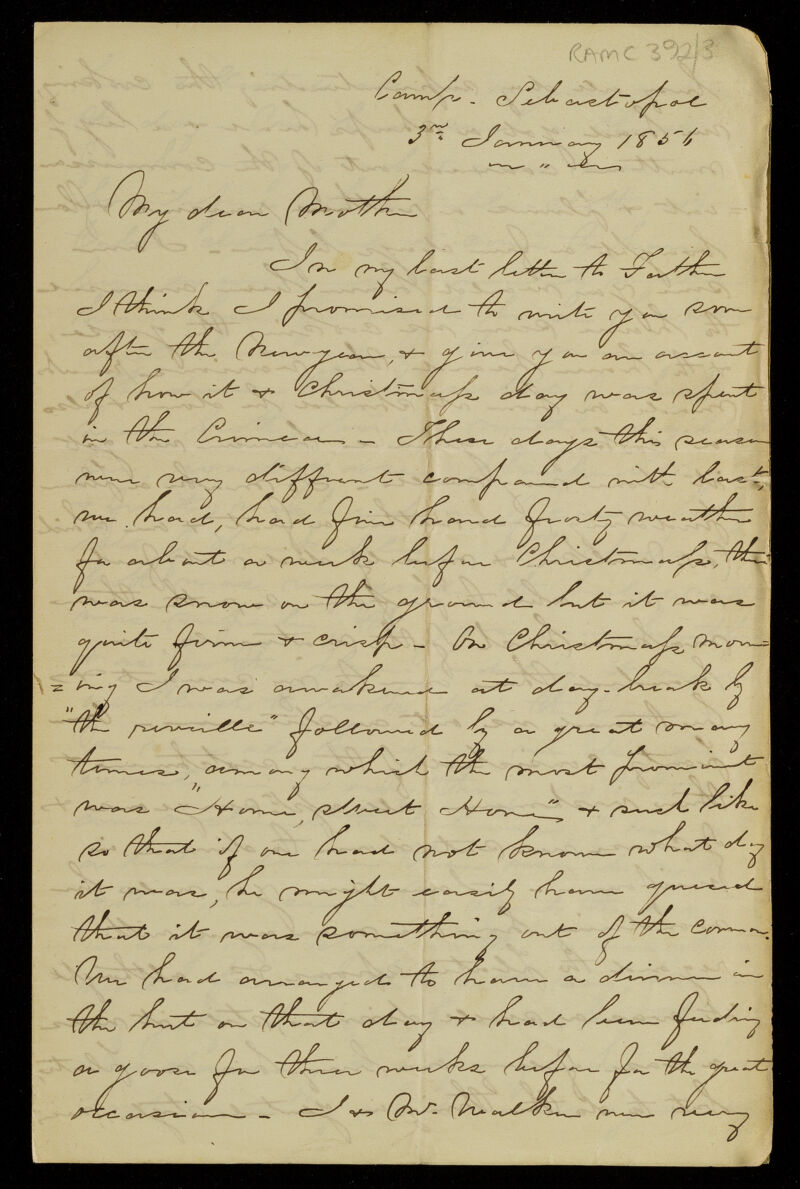 RAMC 392/3
Camp. Sebastopol
3rd January 1856
My dear Mother
In my last letter to Father
I think I promised to write you soon
after the Newyear, & give you an account
of how it & Christmass day was spent
in the Crimea - These days this season
were very different compared with last,
we had, had fine hard frosty weather
for about a week before Christmass, there
was snow on the ground but it was
quite firm & crisp - On Christmass morn=
=ing I was awakened at day-break by
"the reveille" followed by a great many
tunes, among which the most prominent
was "Home, sweet Home" & such like
so that if one had not known what day
it was, he might easily have guessed
that it was something out of the common.
We had arranged to have a dinner in
the hut on that day & had been feeding
a goose for three weeks before for the great
occasion - I & Mr. Walker were very